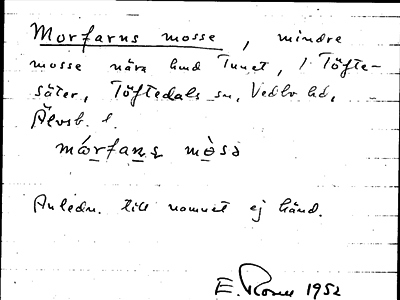 Morfarns mosse, mindre
mosse nära invid Tunet, i Töfte-
säter, Töftedals sn, Vedbo hd,
Älvsb. l.
mórfarṇs mòsə
Anledn. till namnet ej känd.
E. 1952